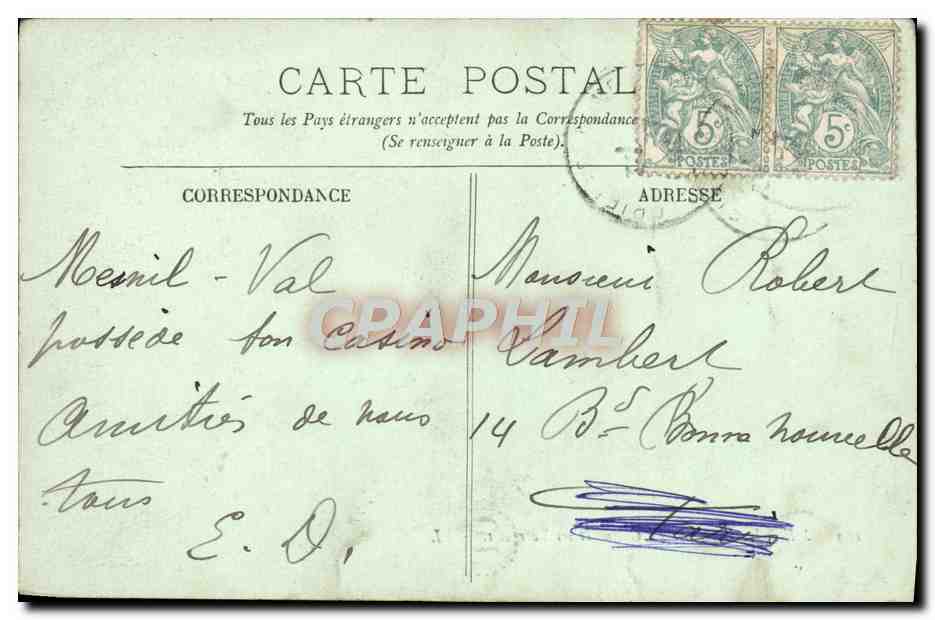 CARTE POSTAL
Tous les Pays étrangers n'acceptent pas la Correspondance
(Se renseigner à la Poste).
5c
POSTES
5c
POSTES
CORRESPONDANCE
Mesnil - Val
possède son Casino
Amitiés de nous
tous
E. D.
ADRESSE
Monsieur Robert
Lambert
14 Bd Bonne nouvelle
Paris
CPAPHIL